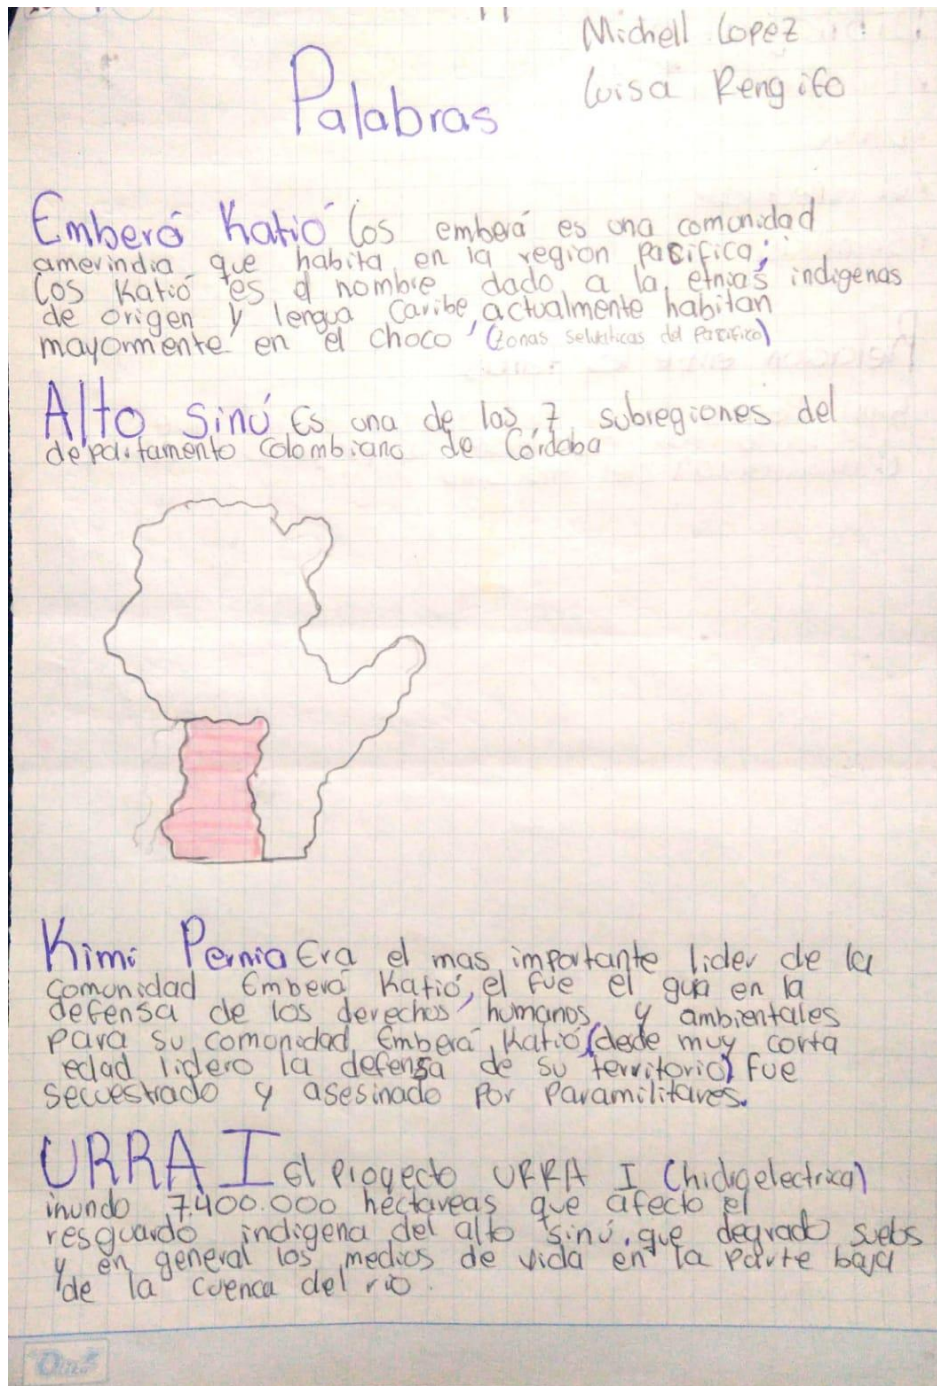 Michell Lopez
Luisa Rengifo
Palabras
Emberá Katió Los emberá es una comunidad
amerindia que habita en la region pacifica;
Los Katió es el nombre dado a la etnias indigenas
de origen y lengua Caribe, actualmente habitan
mayormente en el choco (zonas selvaticas del Pacifico)
Alto Sinú Es una de las 7 subregiones del
departamento Colombiano de Córdoba
Kimi Pernia Era el mas importante lider de la
comunidad Emberá Katió, el fue el guia en la
defensa de los derechos humanos y ambientales
para su comunidad Emberá Katio (desde muy corta
edad lidero la defensa de su territorio) fue
secuestrado y asesinado por Paramilitares.
URRA I El proyecto URRA I (hidroelectrica)
inundo 7.400.000 hectareas que afecto el
resguardo indigena del alto sinú, que degrado suelos
y en general los medios de vida en la parte baja
de la cuenca del rio.